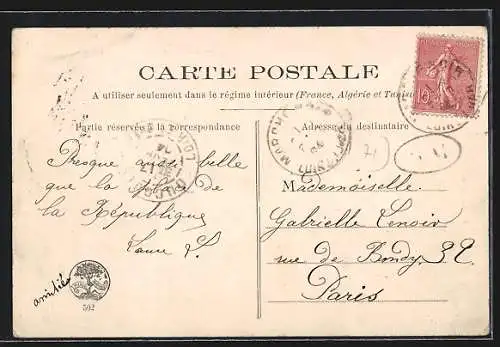 CARTE POSTALE
A utiliser seulement dans le régime intérieur (France, Algérie et Tunisie)
Partie réservée à la correspondance
Adresse du destinataire
Presque aussi belle
que la
la République
Mademoiselle
Gabrielle Lenoir
rue de Bondy 32
Paris
amitiés
502
10